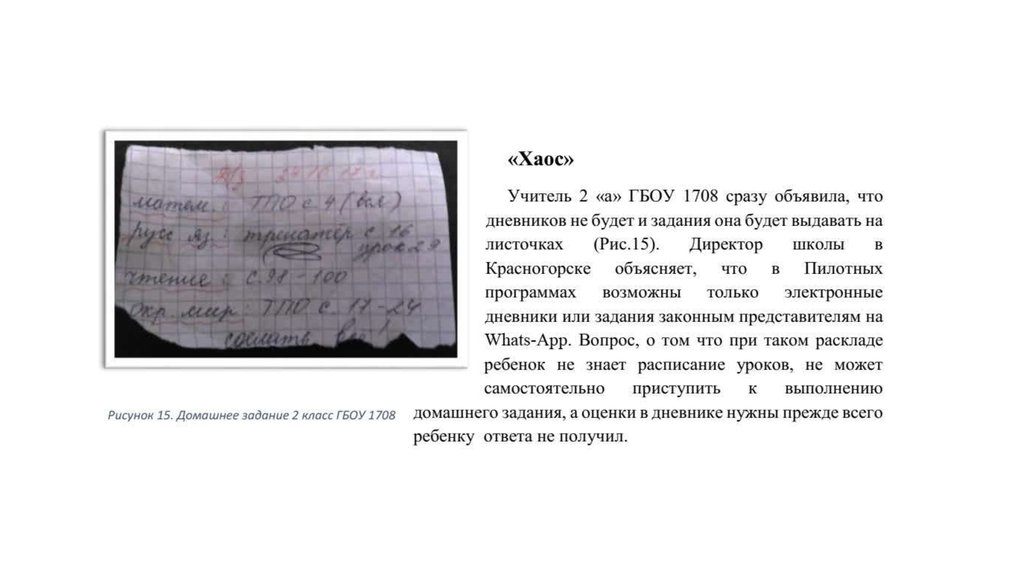 Д/з 24.10.17 г.
матем.: ТПО с 4 (вся)
Русс яз: тренажёр с 16
урок 29
чтение: с. 98 - 100
окр. мир: ТПО с. 17 - 24
сделать всё!
Рисунок 15. Домашнее задание 2 класс ГБОУ 1708
«Хаос»
Учитель 2 «а» ГБОУ 1708 сразу объявила, что
дневников не будет и задания она будет выдавать на
листочках (Рис.15). Директор школы в
Красногорске объясняет, что в Пилотных
программах возможны только электронные
дневники или задания законным представителям на
Whats-App. Вопрос, о том что при таком раскладе
ребенок не знает расписание уроков, не может
самостоятельно приступить к выполнению
домашнего задания, а оценки в дневнике нужны прежде всего
ребенку ответа не получил.